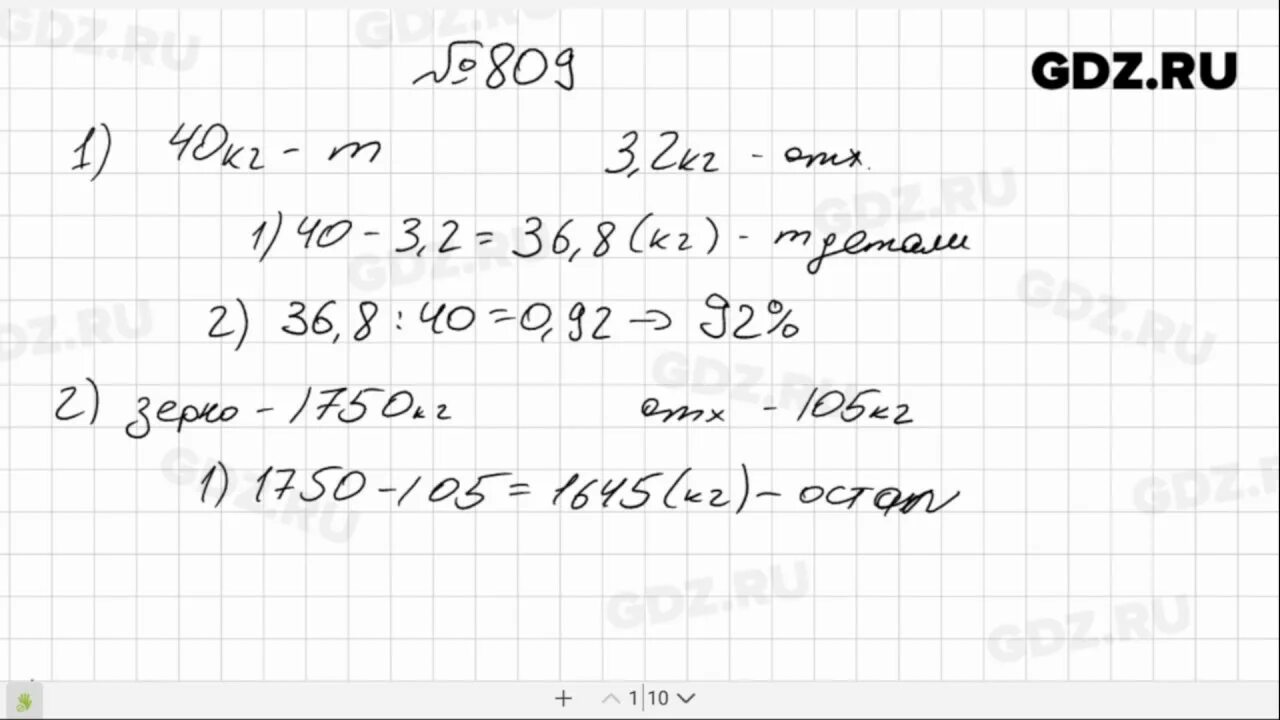 №809
GDZ.RU
1) 40кг - m 3,2кг - отх.
1) 40 - 3,2 = 36,8 (кг) - m детали
2) 36,8 : 40 = 0,92 → 92%
2) зерно - 1750кг отх - 105кг
1) 1750 - 105 = 1645 (кг) - остал
1 10